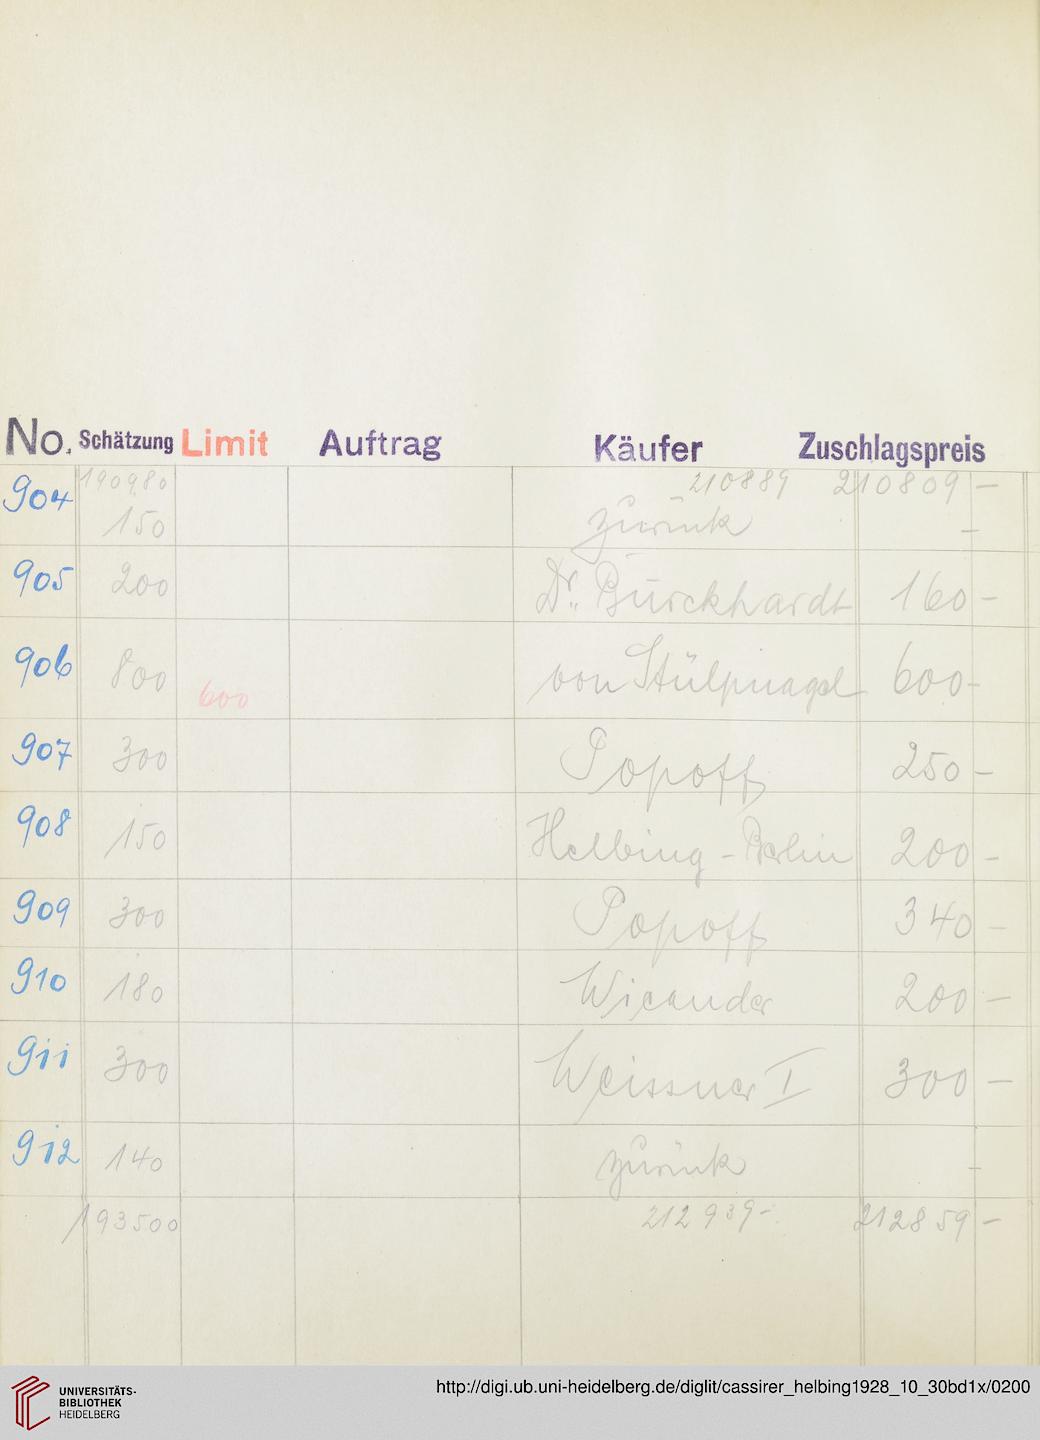 No. Schätzung Limit Auftrag Käufer Zuschlagspreis
190980 210889 210809 -
904 150 zurück -
905 200 Dr. Burckhardt 160 -
906 800 600 von Stülpnagel 600 -
907 300 Popoff 250 -
908 150 Helbing - Berlin 200 -
909 300 Popoff 340 -
910 180 Wicander 200 -
911 300 Weissner I 300 -
912 140 zurück -
193500 212939 - 212859 -
UNIVERSITÄTS-
BIBLIOTHEK
HEIDELBERG
http://digi.ub.uni-heidelberg.de/diglit/cassirer_helbing1928_10_30bd1x/0200